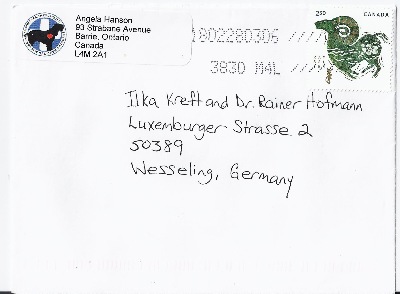 Angela Hanson
93 Strabane Avenue
Barrie, Ontario
Canada
L4M 2A1
1802280306
3830 M4L
250 CANADA
Ilka Kreft and Dr. Rainer Hofmann
Luxemburger Strasse 2
50389
Wesseling, Germany